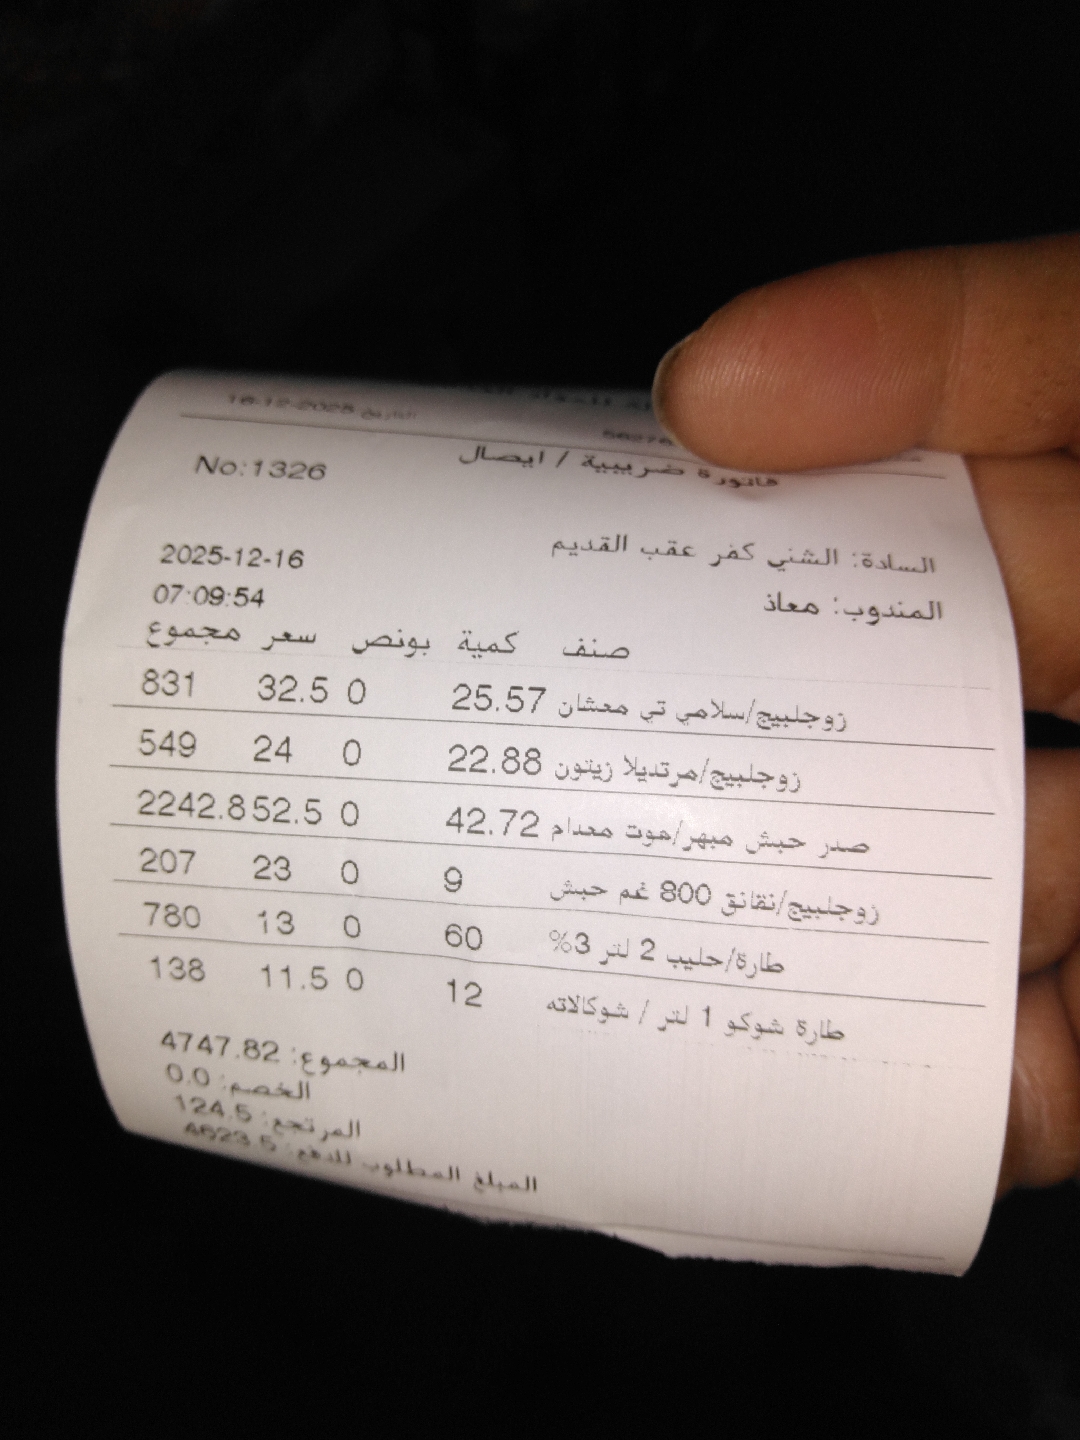 التاريخ 16-12-2025
فاتورة ضريبية / ايصال
No:1326
السادة: الشني كفر عقب القديم
2025-12-16
المندوب: معاذ
07:09:54
صنف كمية بونص سعر مجموع
زوجلبيج/سلامي تي معشان 25.57 0 32.5 831
زوجلبيج/مرتديلا زيتون 22.88 0 24 549
صدر حبش مبهر/هوت معدام 42.72 0 52.5 2242.8
زوجلبيج/نقانق 800 غم حبش 9 0 23 207
طارة/حليب 2 لتر 3% 60 0 13 780
طارة شوكو 1 لتر / شوكالاته 12 0 11.5 138
المجموع: 4747.82
الخصم: 0.0
المرتجع: 124.5
المبلغ المطلوب للدفع: 4623.5